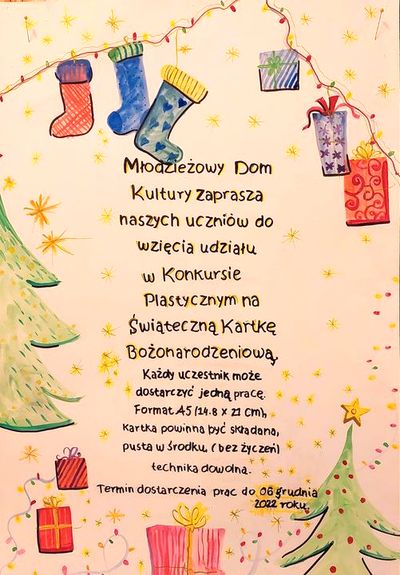 Młodzieżowy Dom
Kultury zaprasza
naszych uczniów do
wzięcia udziału
w Konkursie
Plastycznym na
Świąteczną Kartkę
Bożonarodzeniową.
Każdy uczestnik może
dostarczyć jedną pracę.
Format A5 (14.8 x 21 cm),
kartka powinna być składana,
pusta w środku, (bez życzeń)
technika dowolna.
Termin dostarczenia prac do 06 grudnia
2022 roku.